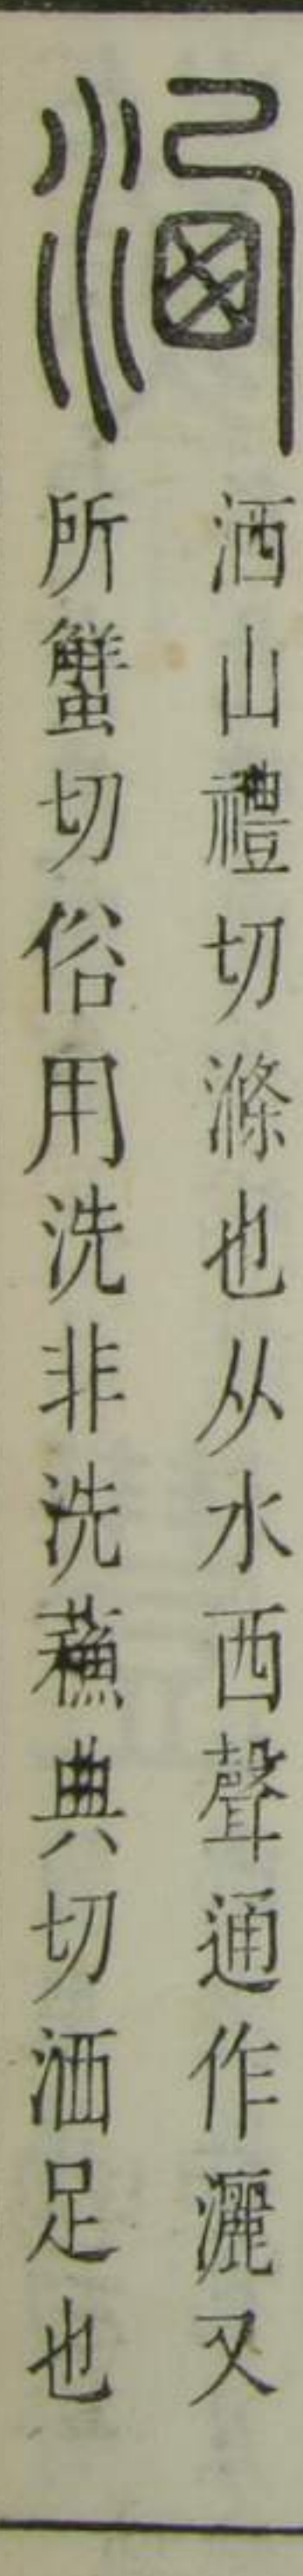 洒
洒山禮切滌也从水西聲通作灑又
所蟹切俗用洗非洗蘓典切洒足也